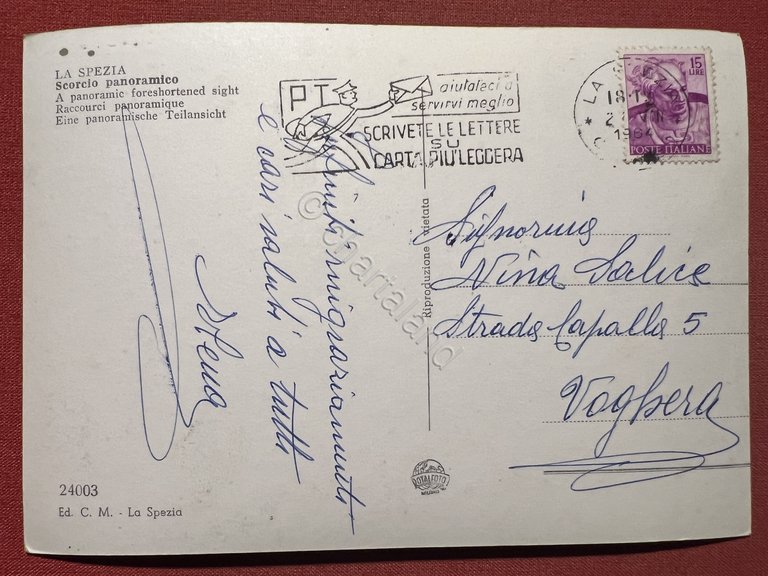 LA SPEZIA
Scorcio panoramico
A panoramic foreshortened sight
Raccourci panoramique
Eine panoramische Teilansicht
PT
aiutateci a
servirvi meglio
SCRIVETE LE LETTERE
SU
CARTA PIU' LEGGERA
LA SPEZIA
18-19
1964
15
LIRE
POSTE ITALIANE
ringraziamenti
e cari saluti a tutti
Signorina
Nina Salice
Strada Capalla 5
Voghera
Riproduzione vietata
24003
Ed. C. M. - La Spezia
ROTALFOTO
MILANO
© chartaland